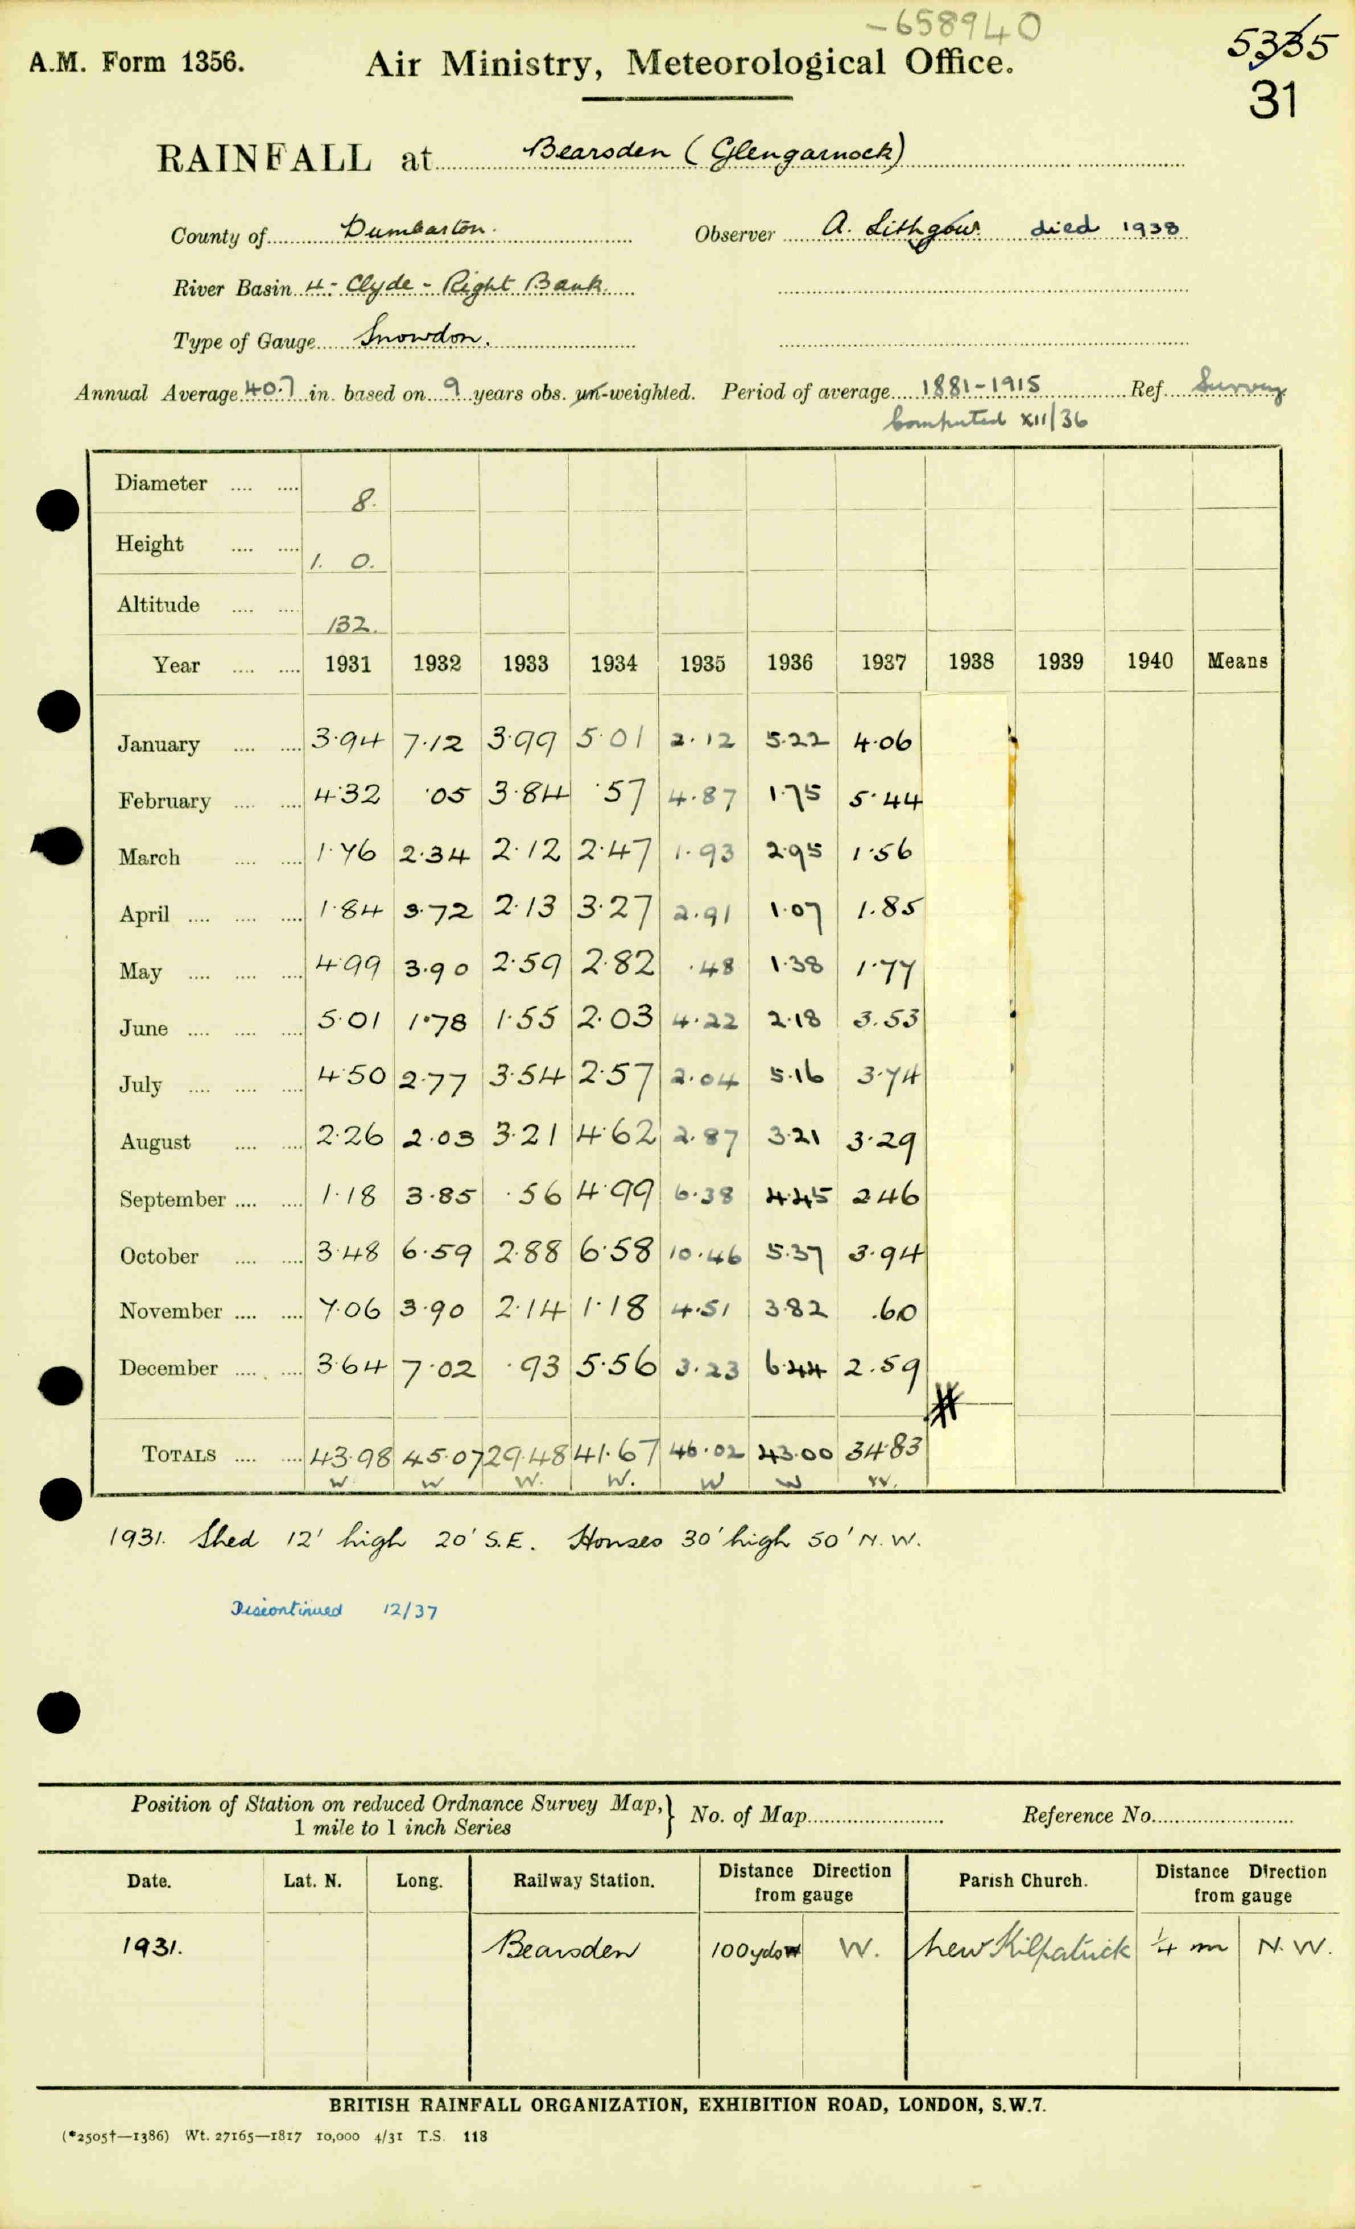 -658940
5335
A.M. Form 1356. Air Ministry, Meteorological Office.
31
RAINFALL at Bearsden (Glengarnock)
County of Dumbarton. Observer A. Lithgow. died 1938
River Basin 4 - Clyde - Right Bank
Type of Gauge Snowdon.
Annual Average 40.7 in. based on 9 years obs. un-weighted. Period of average 1881-1915 Ref. Survey
Computed XII/36
Diameter .... .... 8.
Height .... .... 1. 0.
Altitude .... .... 132.
Year .... .... 1931 1932 1933 1934 1935 1936 1937 1938 1939 1940 Means
January .... .... 3.94 7.12 3.99 5.01 2.12 5.22 4.06
February .... .... 4.32 .05 3.84 .57 4.87 1.75 5.44
March .... .... 1.76 2.34 2.12 2.47 1.93 2.95 1.56
April .... .... .... 1.84 3.72 2.13 3.27 2.91 1.07 1.85
May .... .... .... 4.99 3.90 2.59 2.82 .48 1.38 1.77
June .... .... .... 5.01 1.78 1.55 2.03 4.22 2.18 3.53
July .... .... .... 4.50 2.77 3.54 2.57 2.04 5.16 3.74
August .... .... 2.26 2.03 3.21 4.62 2.87 3.21 3.29
September .... .... 1.18 3.85 .56 4.99 6.38 4.45 2.46
October .... .... 3.48 6.59 2.88 6.58 10.46 5.37 3.94
November .... .... 7.06 3.90 2.14 1.18 4.51 3.82 .60
December .... .... 3.64 7.02 .93 5.56 3.23 6.44 2.59
#
TOTALS .... .... 43.98 45.07 29.48 41.67 46.02 43.00 34.83
W W W. W. W W W.
1931. Shed 12' high 20' S.E. Houses 30' high 50' N.W.
Discontinued 12/37
Position of Station on reduced Ordnance Survey Map, } No. of Map Reference No.
1 mile to 1 inch Series
Date. Lat. N. Long. Railway Station. Distance Direction from gauge Parish Church. Distance Direction from gauge
1931. Bearsden 100yds W. New Kilpatrick ¼ m N.W.
BRITISH RAINFALL ORGANIZATION, EXHIBITION ROAD, LONDON, S.W.7.
(*2505†—1386) Wt. 27165—1817 10,000 4/31 T.S. 118